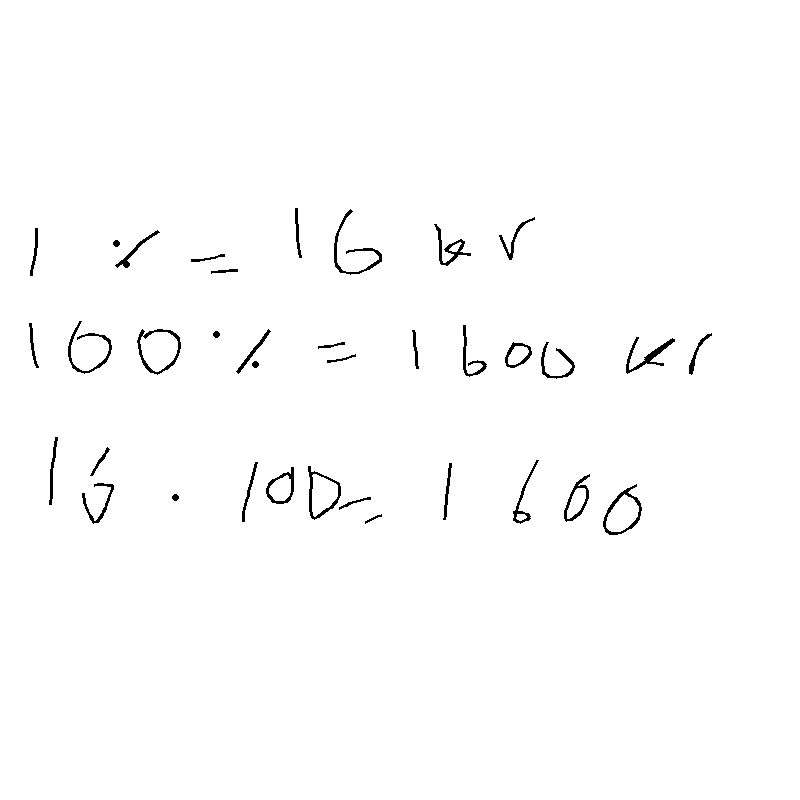 1 % = 16 kr
100 % = 1600 kr
16 · 100 = 1600